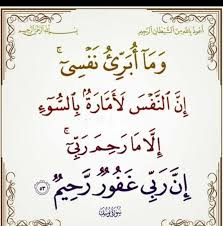 أعوذ بالله من الشيطان الرجيم
بسم الله الرحمن الرحيم
وَمَآ أُبَرِّئُ نَفْسِىٓ ۚ
إِنَّ ٱلنَّفْسَ لَأَمَّارَةٌۢ بِٱلسُّوٓءِ
إِلَّا مَا رَحِمَ رَبِّىٓ ۚ
إِنَّ رَبِّى غَفُورٌ رَّحِيمٌ ٥٣
سورة يوسف